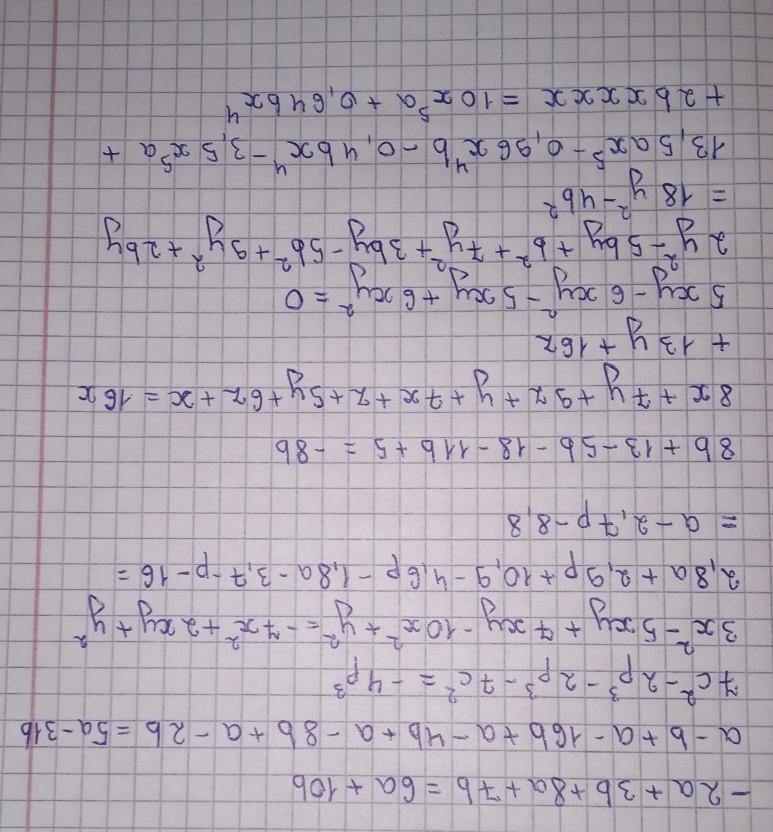 -2a + 3b + 8a + 7b = 6a + 10b
a - b + a - 16b + a - 4b + a - 8b + a - 2b = 5a - 31b
7c² - 2p³ - 2p³ - 7c² = -4p³
3x² - 5xy + 7xy - 10x² + y² = -7x² + 2xy + y²
2,8a + 2,9p + 10,9 - 4,6p - 1,8a - 3,7 - p - 16 =
= a - 2,7p - 8,8
8b + 13 - 5b - 18 - 11b + 5 = -8b
8x + 7y + 9z + y + 7x + z + 5y + 6z + x = 16x
+ 13y + 16z
5xy - 6xy² - 5xy + 6xy² = 0
2y² - 5by + b² + 7y² + 3by - 5b² + 9y² + 2by
= 18y² - 4b²
13,5ax⁵ - 0,96x⁴b - 0,4bx⁴ - 3,5x⁵a +
+ 2bxxxx = 10x⁵a + 0,64bx⁴